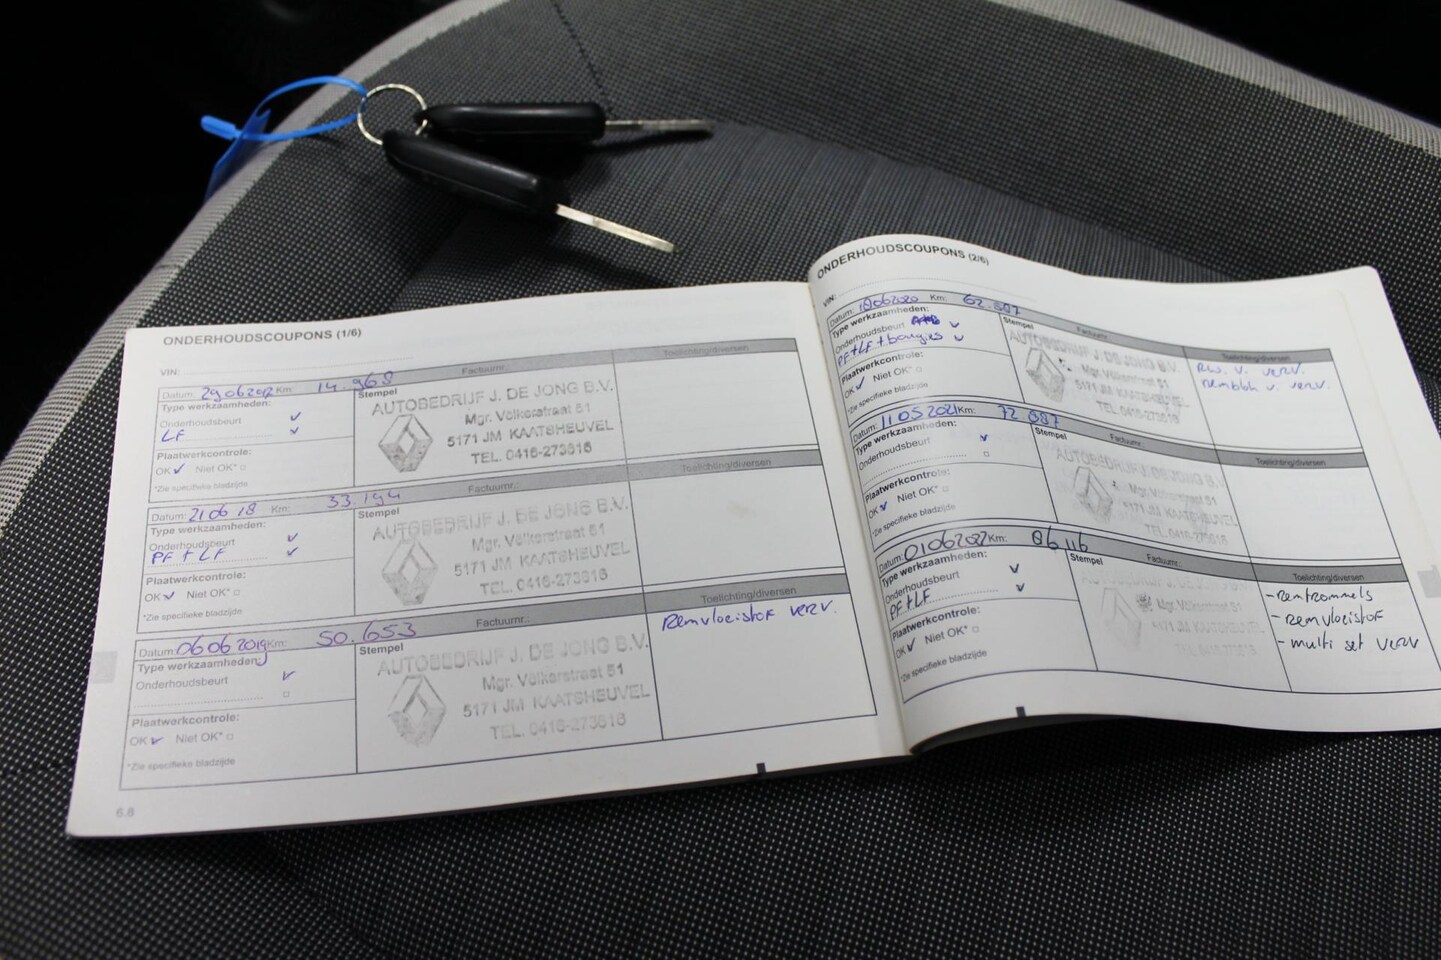 ONDERHOUDSCOUPONS (1/6)
VIN:
Datum: Km: 14.968 Factuurnr.: Toelichting/diversen
Type werkzaamheden: Stempel
Onderhoudsbeurt
LF
Plaatwerkcontrole:
OK Niet OK*
*Zie specifieke bladzijde
AUTOBEDRIJF J. DE JONG B.V.
Mgr. Völkerstraat 51
5171 JM KAATSHEUVEL
TEL. 0416-273616
Datum: 21 06 18 Km: 33.194 Factuurnr.: Toelichting/diversen
Type werkzaamheden: Stempel
Onderhoudsbeurt
PF + LF
Plaatwerkcontrole:
OK Niet OK*
*Zie specifieke bladzijde
AUTOBEDRIJF J. DE JONG B.V.
Mgr. Völkerstraat 51
5171 JM KAATSHEUVEL
TEL. 0416-273616
Datum: 06 06 2019 Km: 50.653 Factuurnr.: Toelichting/diversen
Type werkzaamheden: Stempel
Onderhoudsbeurt
Plaatwerkcontrole:
OK Niet OK*
*Zie specifieke bladzijde
AUTOBEDRIJF J. DE JONG B.V.
Mgr. Völkerstraat 51
5171 JM KAATSHEUVEL
TEL. 0416-273616
Remvloeistof verv.
6.8
ONDERHOUDSCOUPONS (2/6)
VIN:
Datum: Km: Factuurnr.: Toelichting/diversen
Type werkzaamheden: Stempel
Onderhoudsbeurt
PF+LF+bougies
Plaatwerkcontrole:
OK Niet OK*
*Zie specifieke bladzijde
AUTOBEDRIJF J. DE JONG B.V.
Mgr. Völkerstraat 51
5171 JM KAATSHEUVEL
TEL. 0416-273616
v. verv.
v. verv.
Datum: 11 05 2021 Km: Factuurnr.: Toelichting/diversen
Type werkzaamheden: Stempel
Onderhoudsbeurt
Plaatwerkcontrole:
OK Niet OK*
*Zie specifieke bladzijde
AUTOBEDRIJF J. DE JONG B.V.
Mgr. Völkerstraat 51
5171 JM KAATSHEUVEL
TEL. 0416-273616
Datum: Km: Factuurnr.: Toelichting/diversen
Type werkzaamheden: Stempel
Onderhoudsbeurt
PF+LF
Plaatwerkcontrole:
OK Niet OK*
*Zie specifieke bladzijde
Mgr. Völkerstraat 51
5171 JM KAATSHEUVEL
TEL. 0416-273616
- remtrommels
- remvloeistof
- multi set verv